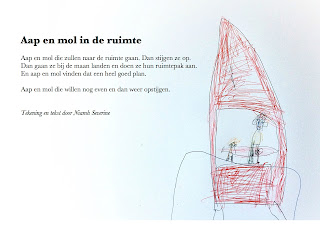 Aap en mol in de ruimte
Aap en mol die zollen naar de ruimte gaan. Dan stijgen ze op.
Dan gaan ze bij de maan landen en doen ze hun ruimtepak aan.
En aap en mol vinden dat een heel goed plan.
Aap en mol die willen nog even en dan weer opstijgen.
Tekening en tekst door Niamh Severine